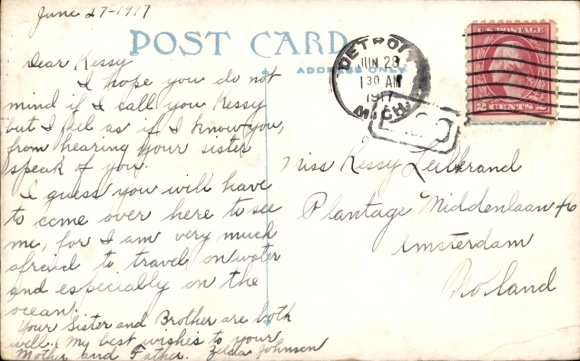 June 27-1917
POST CARD
ADDRESS ONLY
DETROIT
JUN 28
130 AM
1917
MICH.
U.S. POSTAGE
2 CENTS 2
Dear Kessy
I hope you do not
mind if I call you Kessy
but I feel as if I know you,
from hearing your sister
speak of you.
I guess you will have
to come over here to see
me, for I am very much
afraid to travel on water
and especially on the
ocean.
Your Sister and Brother are both
well. My best wishes to your
Mother and Father. Zelda Johnson
Miss Kessy Leibrand
Plantage Middenlaan
Amsterdam
Holland